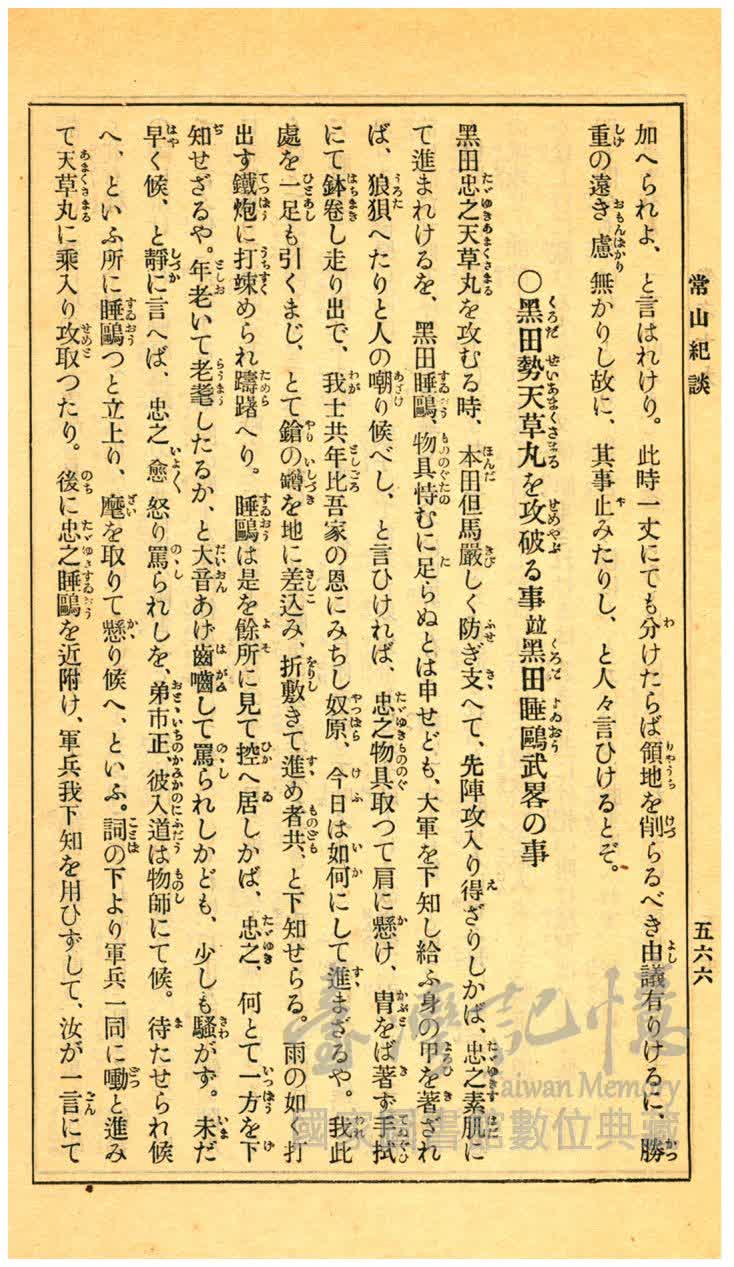 常山紀談
五六六
加へられよ、と言はれけり。此時一丈にても分けたらば領地を削らるべき由議有りけるに、勝
重の遠き慮無かりし故に、其事止みたりし、と人々言ひけるとぞ。
〇黑田勢天草丸を攻破る事竝黑田睡鷗武畧の事
黑田忠之天草丸を攻むる時、本田但馬嚴しく防ぎ支へて、先陣攻入り得ざりしかば、忠之素肌に
て進まれけるを、黑田睡鷗、物具恃むに足らぬとは申せども、大軍を下知し給ふ身の甲を著ざれ
ば、狼狽へたりと人の嘲り候べし、と言ひければ、忠之物具取つて肩に懸け、冑をば著ず手拭
にて鉢卷し走り出で、我士共年比吾家の恩にみちし奴原、今日は如何にして進まざるや。我此
處を一足も引くまじ、とて鎗の鐏を地に差込み、折敷きて進め者共、と下知せらる。雨の如く打
出す鐵炮に打竦められ躊躇へり。睡鷗は是を餘所に見て控へ居しかば、忠之、何とて一方を下
知せざるや。年老いて老耄したるか、と大音あげ齒嚙して罵られしかども、少しも騷がず。未だ
早く候、と靜に言へば、忠之愈怒り罵られしを、弟市正、彼入道は物師にて候。待たせられ候
へ、といふ所に睡鷗つと立上り、麾を取りて懸り候へ、といふ。詞の下より軍兵一同に噇と進み
て天草丸に乘入り攻取つたり。後に忠之睡鷗を近附け、軍兵我下知を用ひずして、汝が一言にて
臺灣記憶
Taiwan Memory
國家圖書館數位典藏